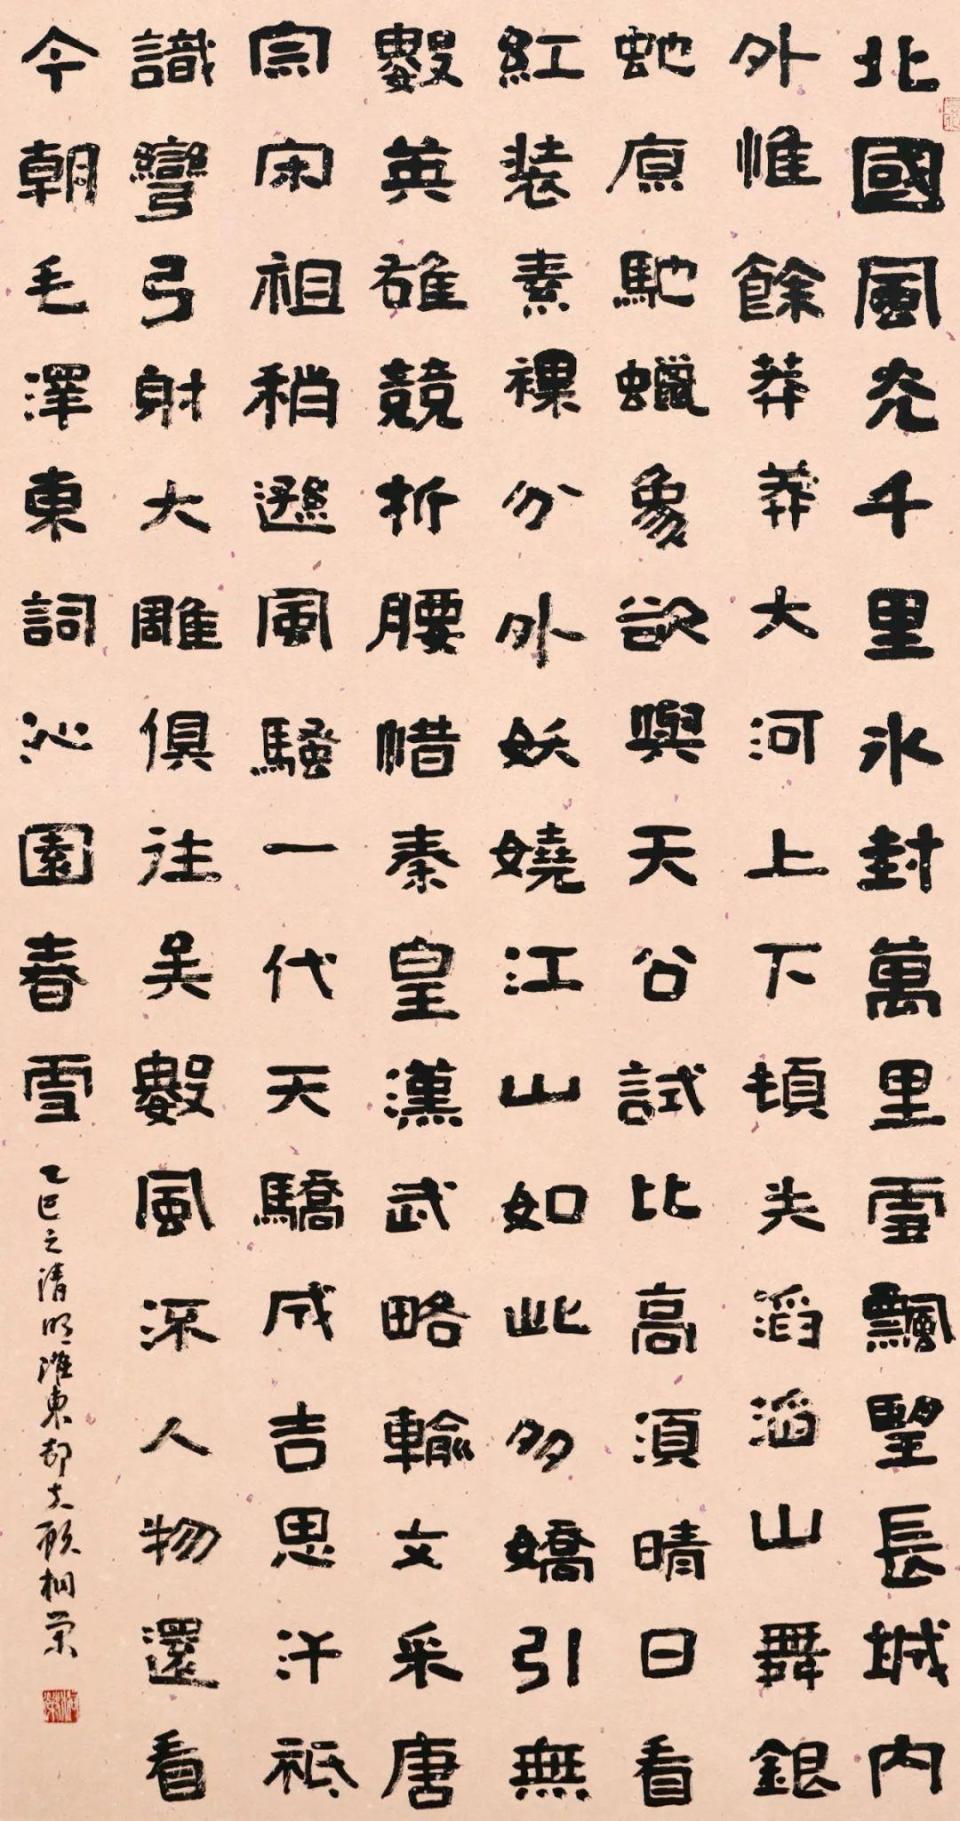 北國風光千里氷封萬里雪飄望長城內
外惟餘莽莽大河上下頓失滔滔山舞銀
蛇原馳蠟象欲與天公試比高須晴日看
紅裝素裸分外妖嬈江山如此多嬌引無
數英雄競折腰惜秦皇漢武略輸文采唐
宗宋祖稍遜風騷一代天驕成吉思汗祇
識彎弓射大雕俱往矣數風流人物還看
今朝毛澤東詞沁園春雪
乙巳之清明淮東